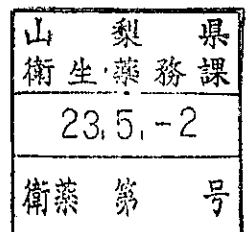 山梨県
衛生・薬務課
23.5.-2
衛薬第 号